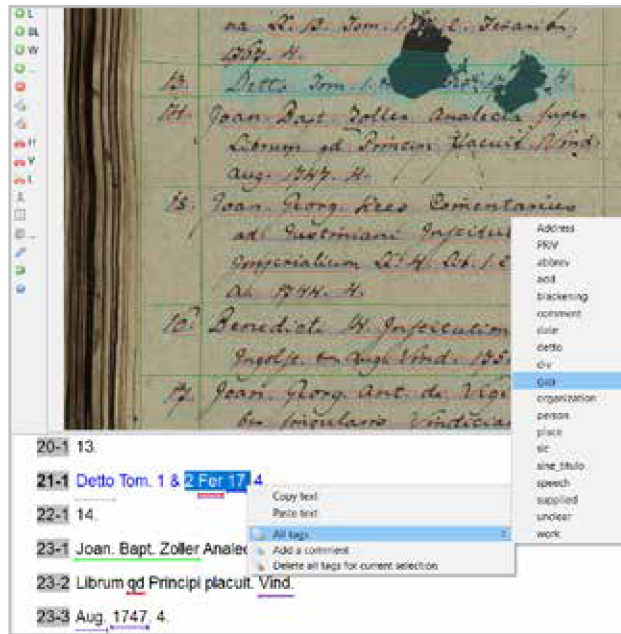 L
BL
W
...
H
V
L
...
na L. B. Tom. 1.
1757. 4.
13. Detto Tom. 1. 4.
14. Joan. Bapt. Zoller Analecta super
Librum qd Principi Placuit Vind.
Aug. 1747. 4.
15. Joan. Georg. Kees Comentarius
ad Justiniani
Imperialium Lib. 1.
1744. 4.
16. Benedicti 14
Aug. Vind.
17. Joan. Georg. Ant. de
Vindiciae
Address
PRIV
abbrev
add
blackening
comment
date
detto
div
gap
organization
person
place
sic
sine_titulo
speech
supplied
unclear
work
20-1 13.
21-1 Detto Tom. 1 & 2 Fer 17, 4
22-1 14.
23-1 Joan. Bapt. Zoller Analec
23-2 Librum qd Principi placuit. Vind.
23-3 Aug. 1747, 4.
Copy text
Paste text
All tags
Add a comment
Delete all tags for current selection